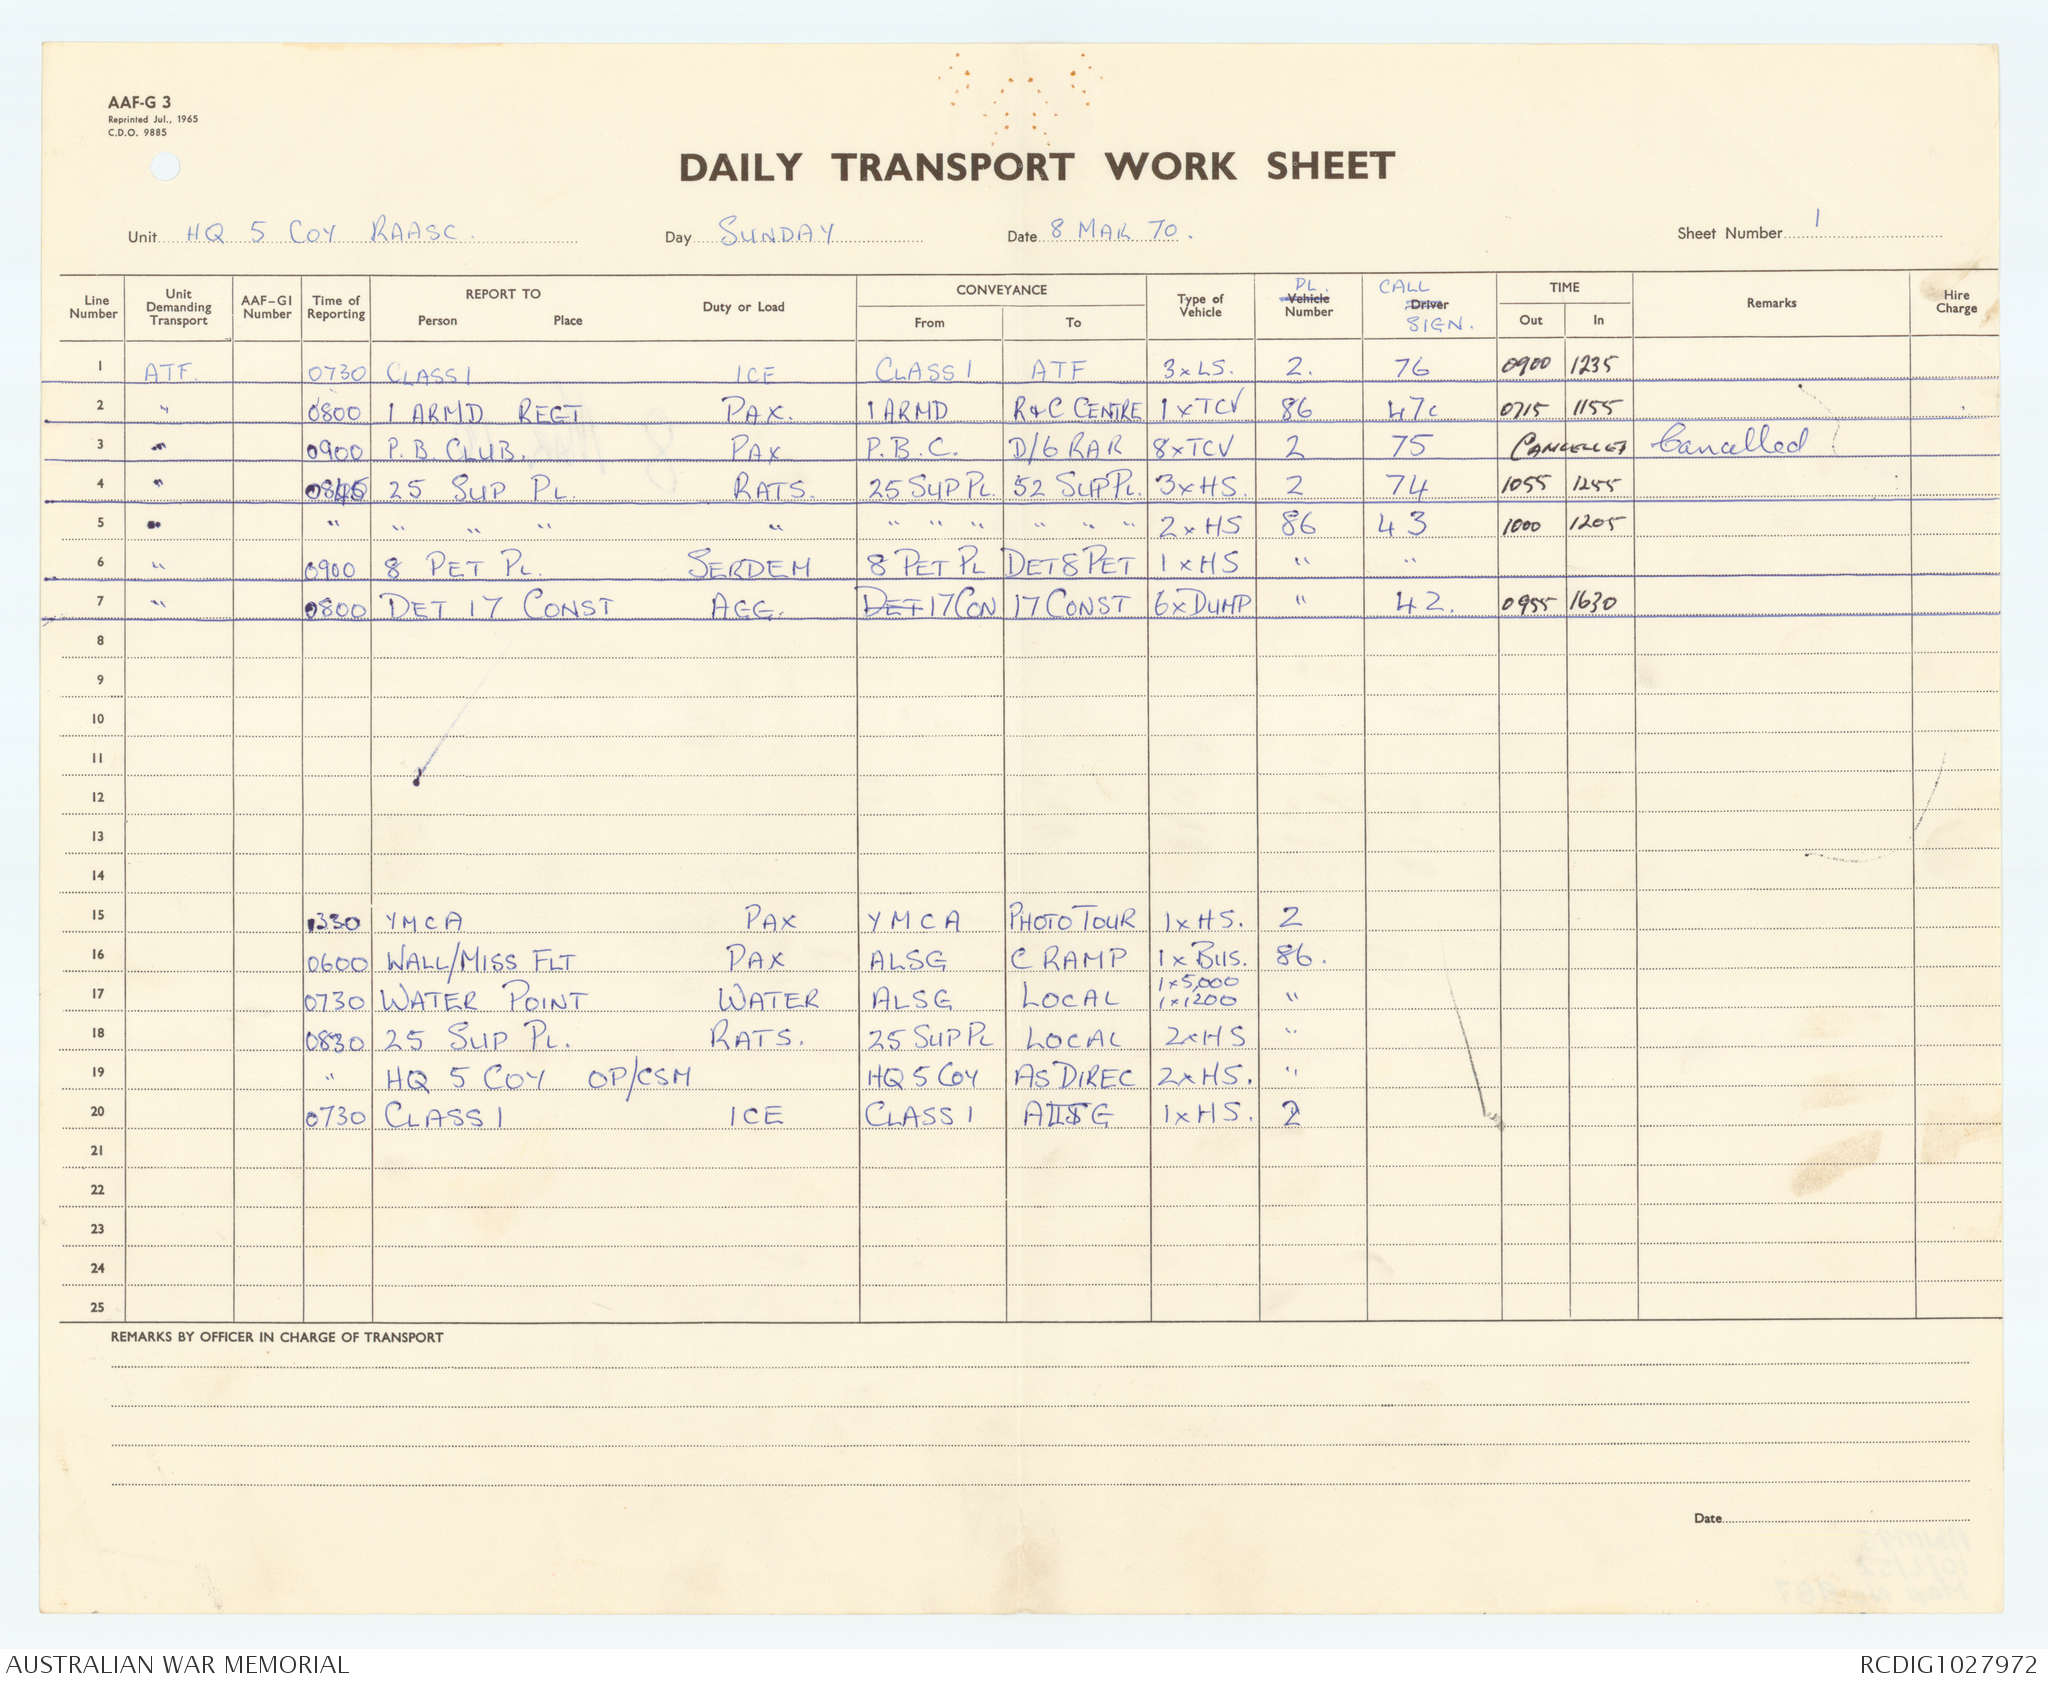 AAF-G 3
Reprinted Jul., 1965
C.D.O. 9885
DAILY TRANSPORT WORK SHEET
Unit HQ 5 COY RAASC. Day SUNDAY Date 8 MAR 70. Sheet Number 1
Line Number Unit Demanding Transport AAF-G1 Number Time of Reporting REPORT TO Person Place Duty or Load CONVEYANCE From To Type of Vehicle PL. Vehicle Number CALL Driver SIGN. TIME Out In Remarks Hire Charge
1 ATF. 0730 CLASS 1 ICE CLASS 1 ATF 3xLS. 2. 76 0900 1235
2 " 0800 1 ARMD REGT PAX. 1 ARMD R&C CENTRE 1xTCV 86 47c 0715 1155
3 " 0900 P.B. CLUB. PAX P.B.C. D/6 RAR 8xTCV 2 75 CANCELLED Cancelled
4 " 0845 25 SUP PL. RATS. 25 SUP PL. 52 SUP PL. 3xHS. 2 74 1055 1255
5 " " " " " " " " " " " " 2xHS 86 43 1000 1205
6 " 0900 8 PET PL. SERDEM 8 PET PL DET 8 PET 1xHS " "
7 " 0800 DET 17 CONST AGG. DET 17 CON 17 CONST 6xDUMP " 42. 0955 1630
8
9
10
11
12
13
14
15 1330 YMCA PAX YMCA PHOTO TOUR 1xHS. 2
16 0600 WALL/MISS FLT PAX ALSG C RAMP 1xBUS. 86.
17 0730 WATER POINT WATER ALSG LOCAL 1x5,000 1x1200 "
18 0830 25 SUP PL. RATS. 25 SUP PL LOCAL 2xHS "
19 " HQ 5 COY OP/CSM HQ 5 COY AS DIREC 2xHS. "
20 0730 CLASS 1 ICE CLASS 1 ALSG 1xHS. 2
21
22
23
24
25
REMARKS BY OFFICER IN CHARGE OF TRANSPORT
Date
AUSTRALIAN WAR MEMORIAL RCDIG1027972